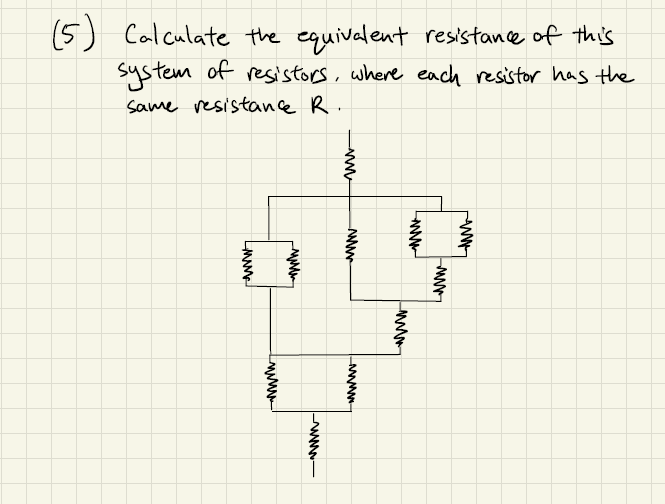 (5) Calculate the equivalent resistance of this
system of resistors, where each resistor has the
same resistance R.